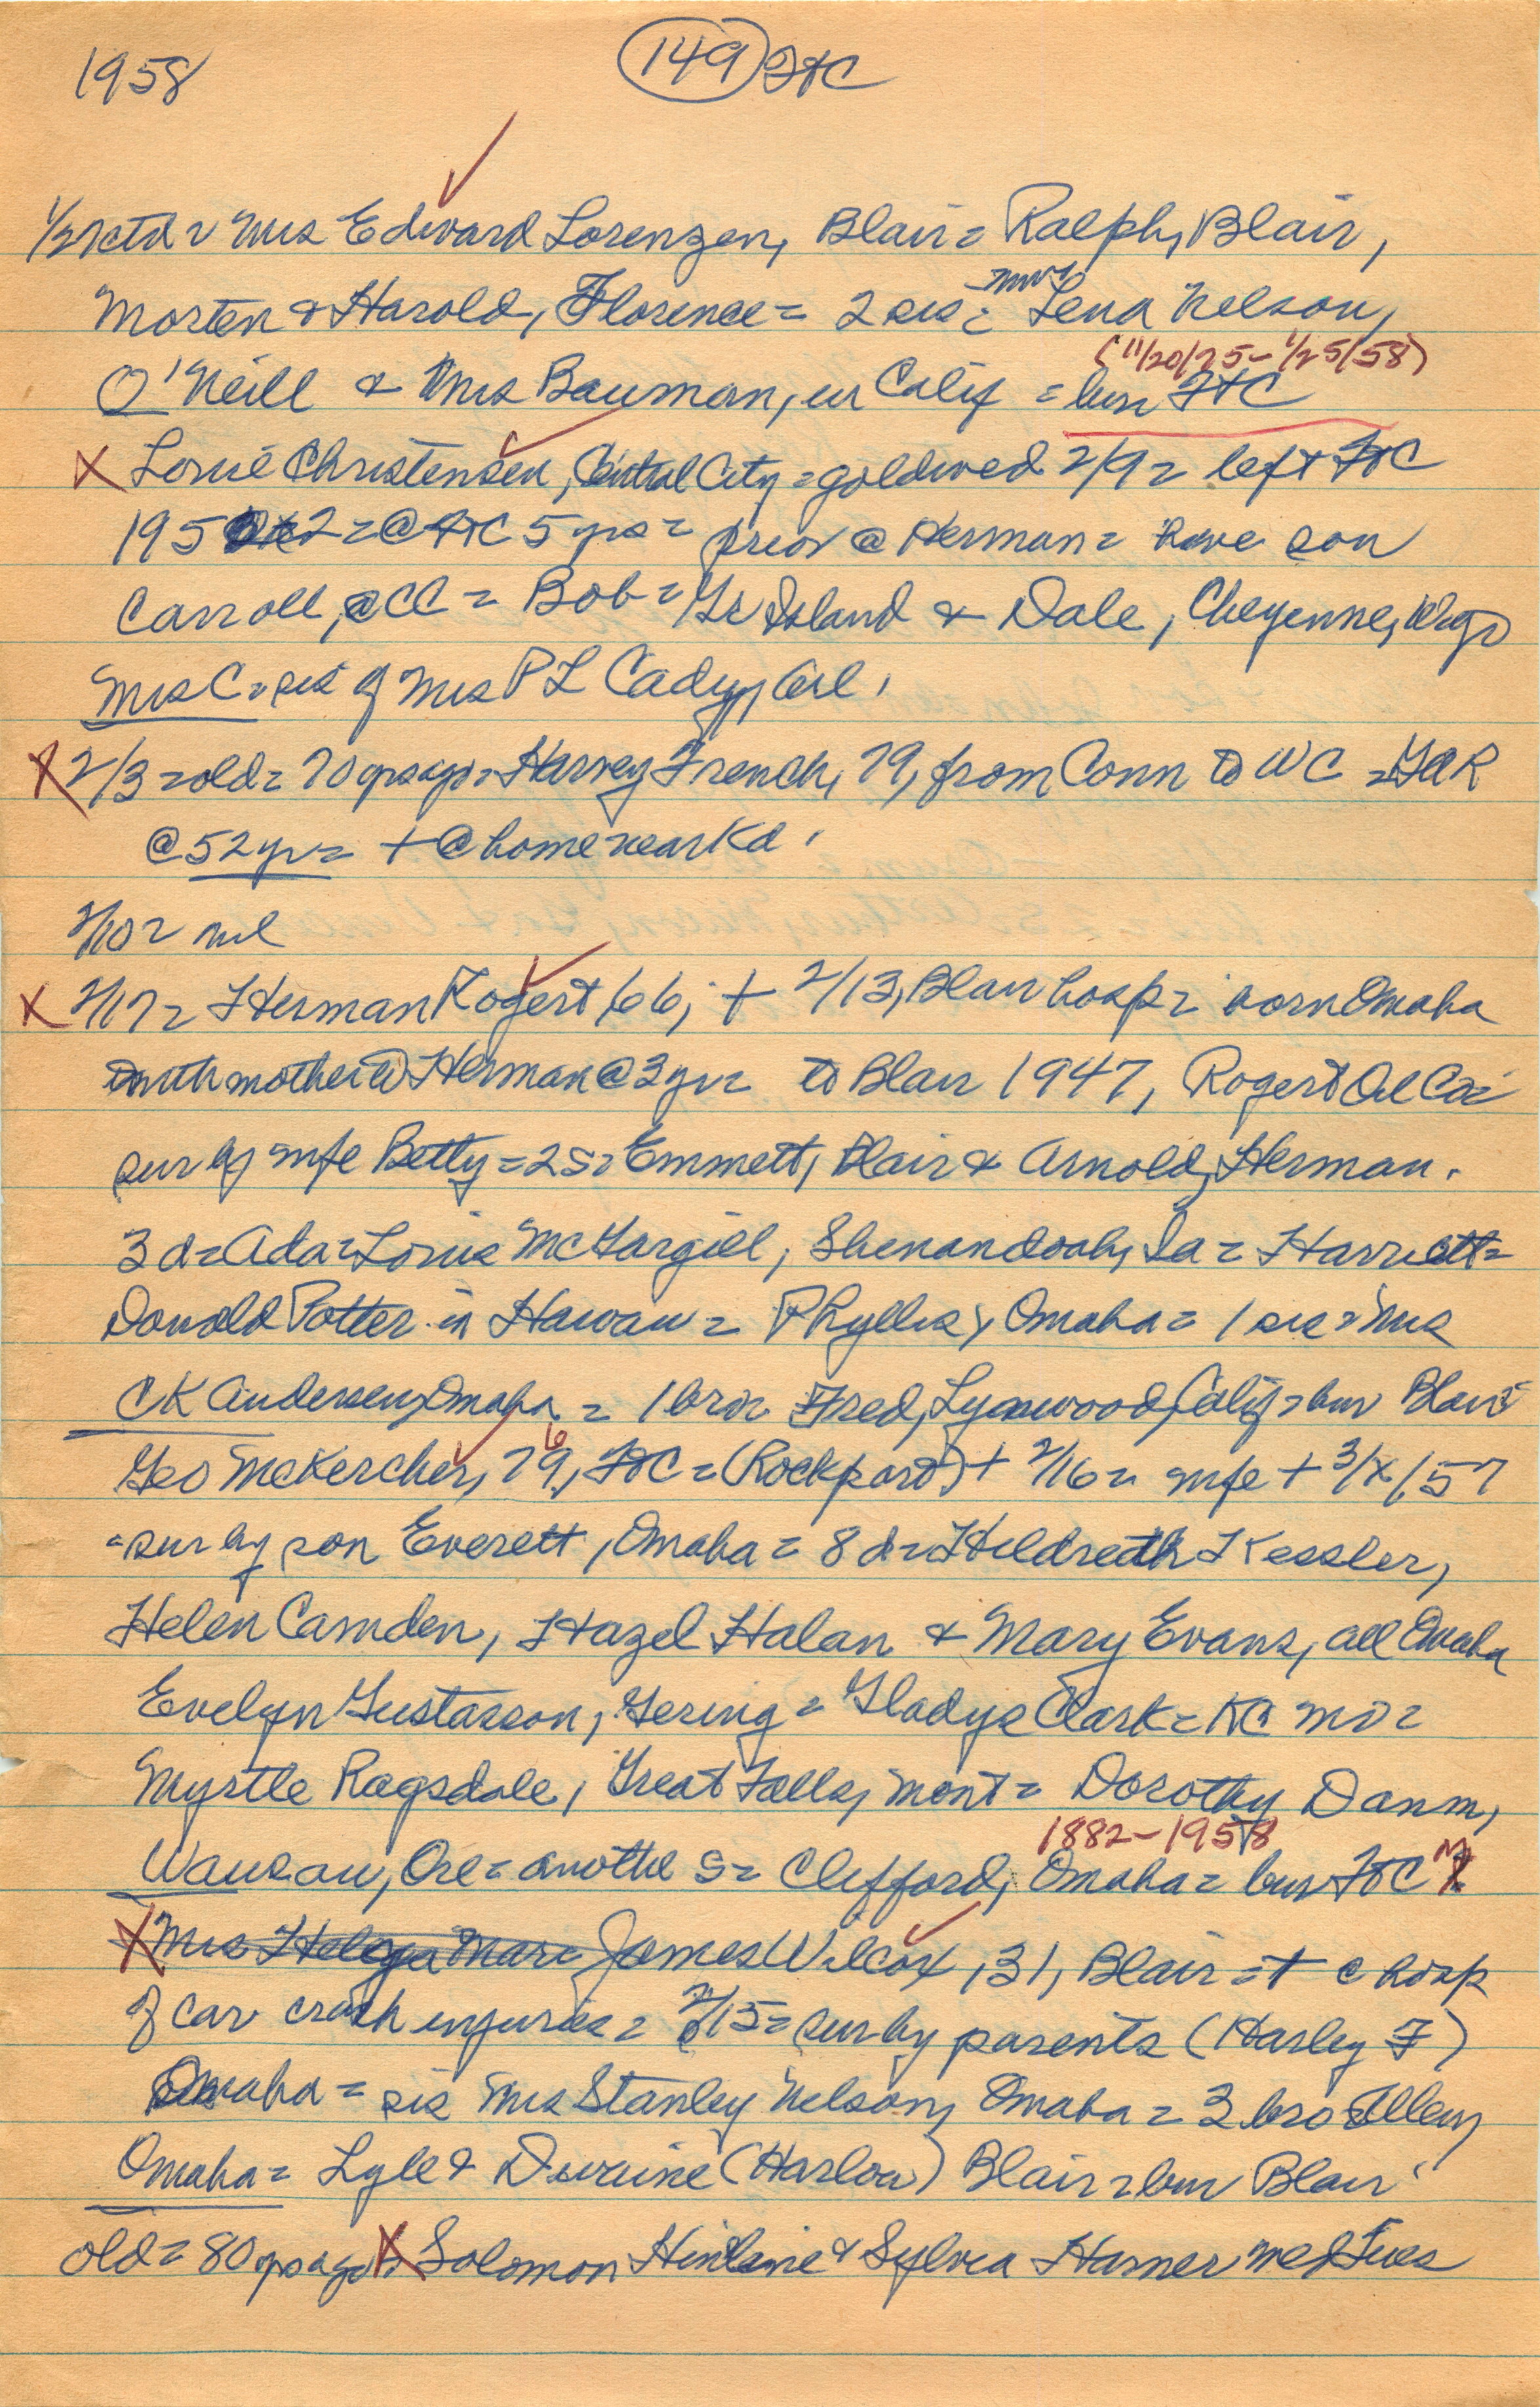 1958
149 FtC
1/27 ctd = Mrs Edward Lorenzen, Blair = Ralph, Blair,
Morten & Harold, Florence = 2 sis = Mrs Lena Nelson,
(11/20/75 - 1/25/58)
O'Neill & Mrs Bauman, in Calif = bur FtC
X Louie Christensen, Central City = gold wed 2/9 = left FtC
1952 = @ FtC 5 yrs = prior @ Herman = have son
Carroll, @ CC = Bob = Gr Island & Dale, Cheyenne, Wyo
Mrs C = sis of Mrs P L Cady, Arl.
X 2/3 = old = 70 yrs ago = Harvey French, 79, from Conn to WC = GAR
@ 52 yr = + @ home near Kd.
2/10 = nil
X 2/17 = Herman Rogert, 66, + 2/13, Blair hosp = born Omaha
with mother @ Herman @ 3 yr = to Blair 1947, Rogert Oil Co =
sur by wife Betty = 2 s = Emmett, Blair & Arnold, Herman.
3 d = Ada = Louis McGargill, Shenandoah, Ia = Harriett =
Donald Potter in Hawaii = Phyllis, Omaha = 1 sis = Mrs
C K Andersen, Omaha = 1 bro = Fred, Lynwood, Calif = bur Blair
6
Geo McKercher, 79, FtC = (Rockport) + 2/16 = wife + 3/x/57
= sur by son Everett, Omaha = 8 d = Hildreth Kessler,
Helen Camden, Hazel Halan & Mary Evans, all Omaha
Evelyn Gustasson, Gering = Gladys Clark = KC Mo =
Myrtle Ragsdale, Great Falls, Mont = Dorothy Danm,
1882-1958
Wausau, Ore = another s = Clifford, Omaha = bur FtC
X Mrs Helega Mare James Wilcox, 31, Blair = + c hosp
of car crash injuries = 2/15 = sur by parents (Harley F)
Omaha = sis Mrs Stanley Nelson, Omaha = 3 bro Allen,
Omaha = Lyle & Duraine (Harlow) Blair = bur Blair
old = 80 yrs ago X Solomon Hineline & Sylvia Harner